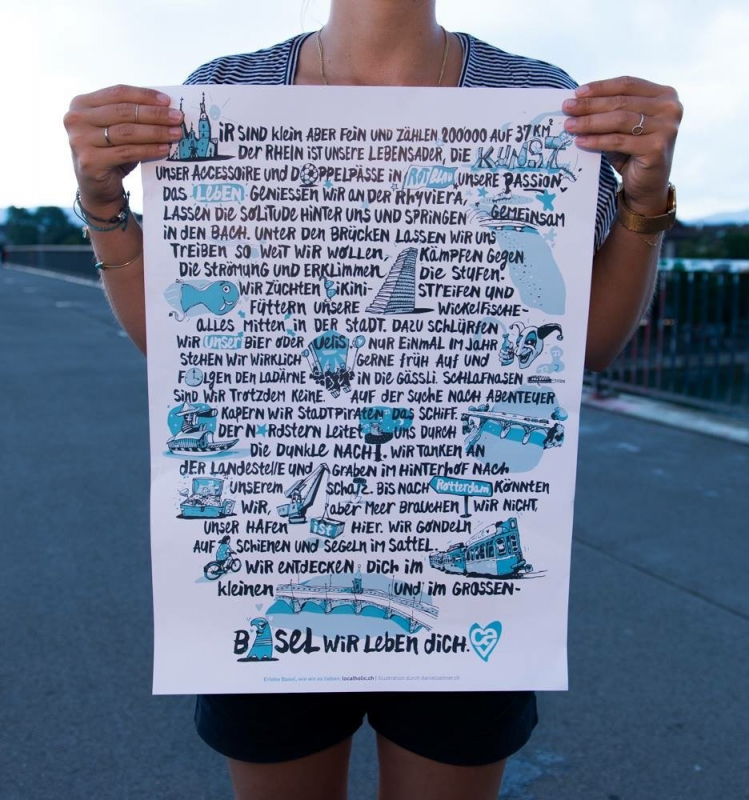 WIR SIND klein ABER FEIN UND ZÄHLEN 200'000 AUF 37 KM²
DER RHEIN iST UNSERE LEBENSADER, DIE KUNST
UNSER ACCESSOIRE UND DOPPELPÄSSE IN ROTBLAU UNSERE PASSION
DAS LEBEN GENIESSEN WIR AN DER RHYVIERA,
LASSEN DIE SOLITUDE HINTER UNS UND SPRINGEN GEMEINSAM
iN DEN BACH. UNTER DEN BRÜCKEN LASSEN WIR UNS
TREIBEN SO WEIT WIR WOLLEN. KÄMPFEN GEGEN
DIE STRÖMUNG UND ERKLIMMEN DIE STUFEN.
WIR ZÜCHTEN BIKINI- STREIFEN UND
FÜTTERN UNSERE WICKELFISCHE-
ALLES MITTEN IN DER STADT. DAZU SCHLÜRFEN
WIR UNSER BIER ODER UELIS. NUR EINMAL IM JAHR
STEHEN WIR WIRKLICH GERNE FRÜH AUF UND
FOLGEN DEN LADÄRNE IN DIE GÄSSLI. SCHLAFNASEN
SIND WIR TROTZDEM KEINE. AUF DER SUCHE NACH ABENTEUER
KAPERN WIR STADTPIRATEN DAS SCHIFF.
DER NORDSTERN LEITET UNS DURCH
DIE DUNKLE NACHT. WIR TANKEN AN
dER LANDESTELLE UND GRABEN IM HINTERHOF NACH
UNSEREM SCHATZ. BIS NACH Rotterdam KÖNNTEN
WIR, aBER MEER BRAUCHEN WIR NICHT,
UNSER HAFEN iST HIER. WIR GONDELN
AUF SCHIENEN UND SEGELN IM SATTEL.
WIR ENTDECKEN DICH IM
kleinen UND IM GROSSEN-
BASEL WIR LEBEN DICH.
Erlebe Basel, wie wir es lieben. localholic.ch | Illustration durch